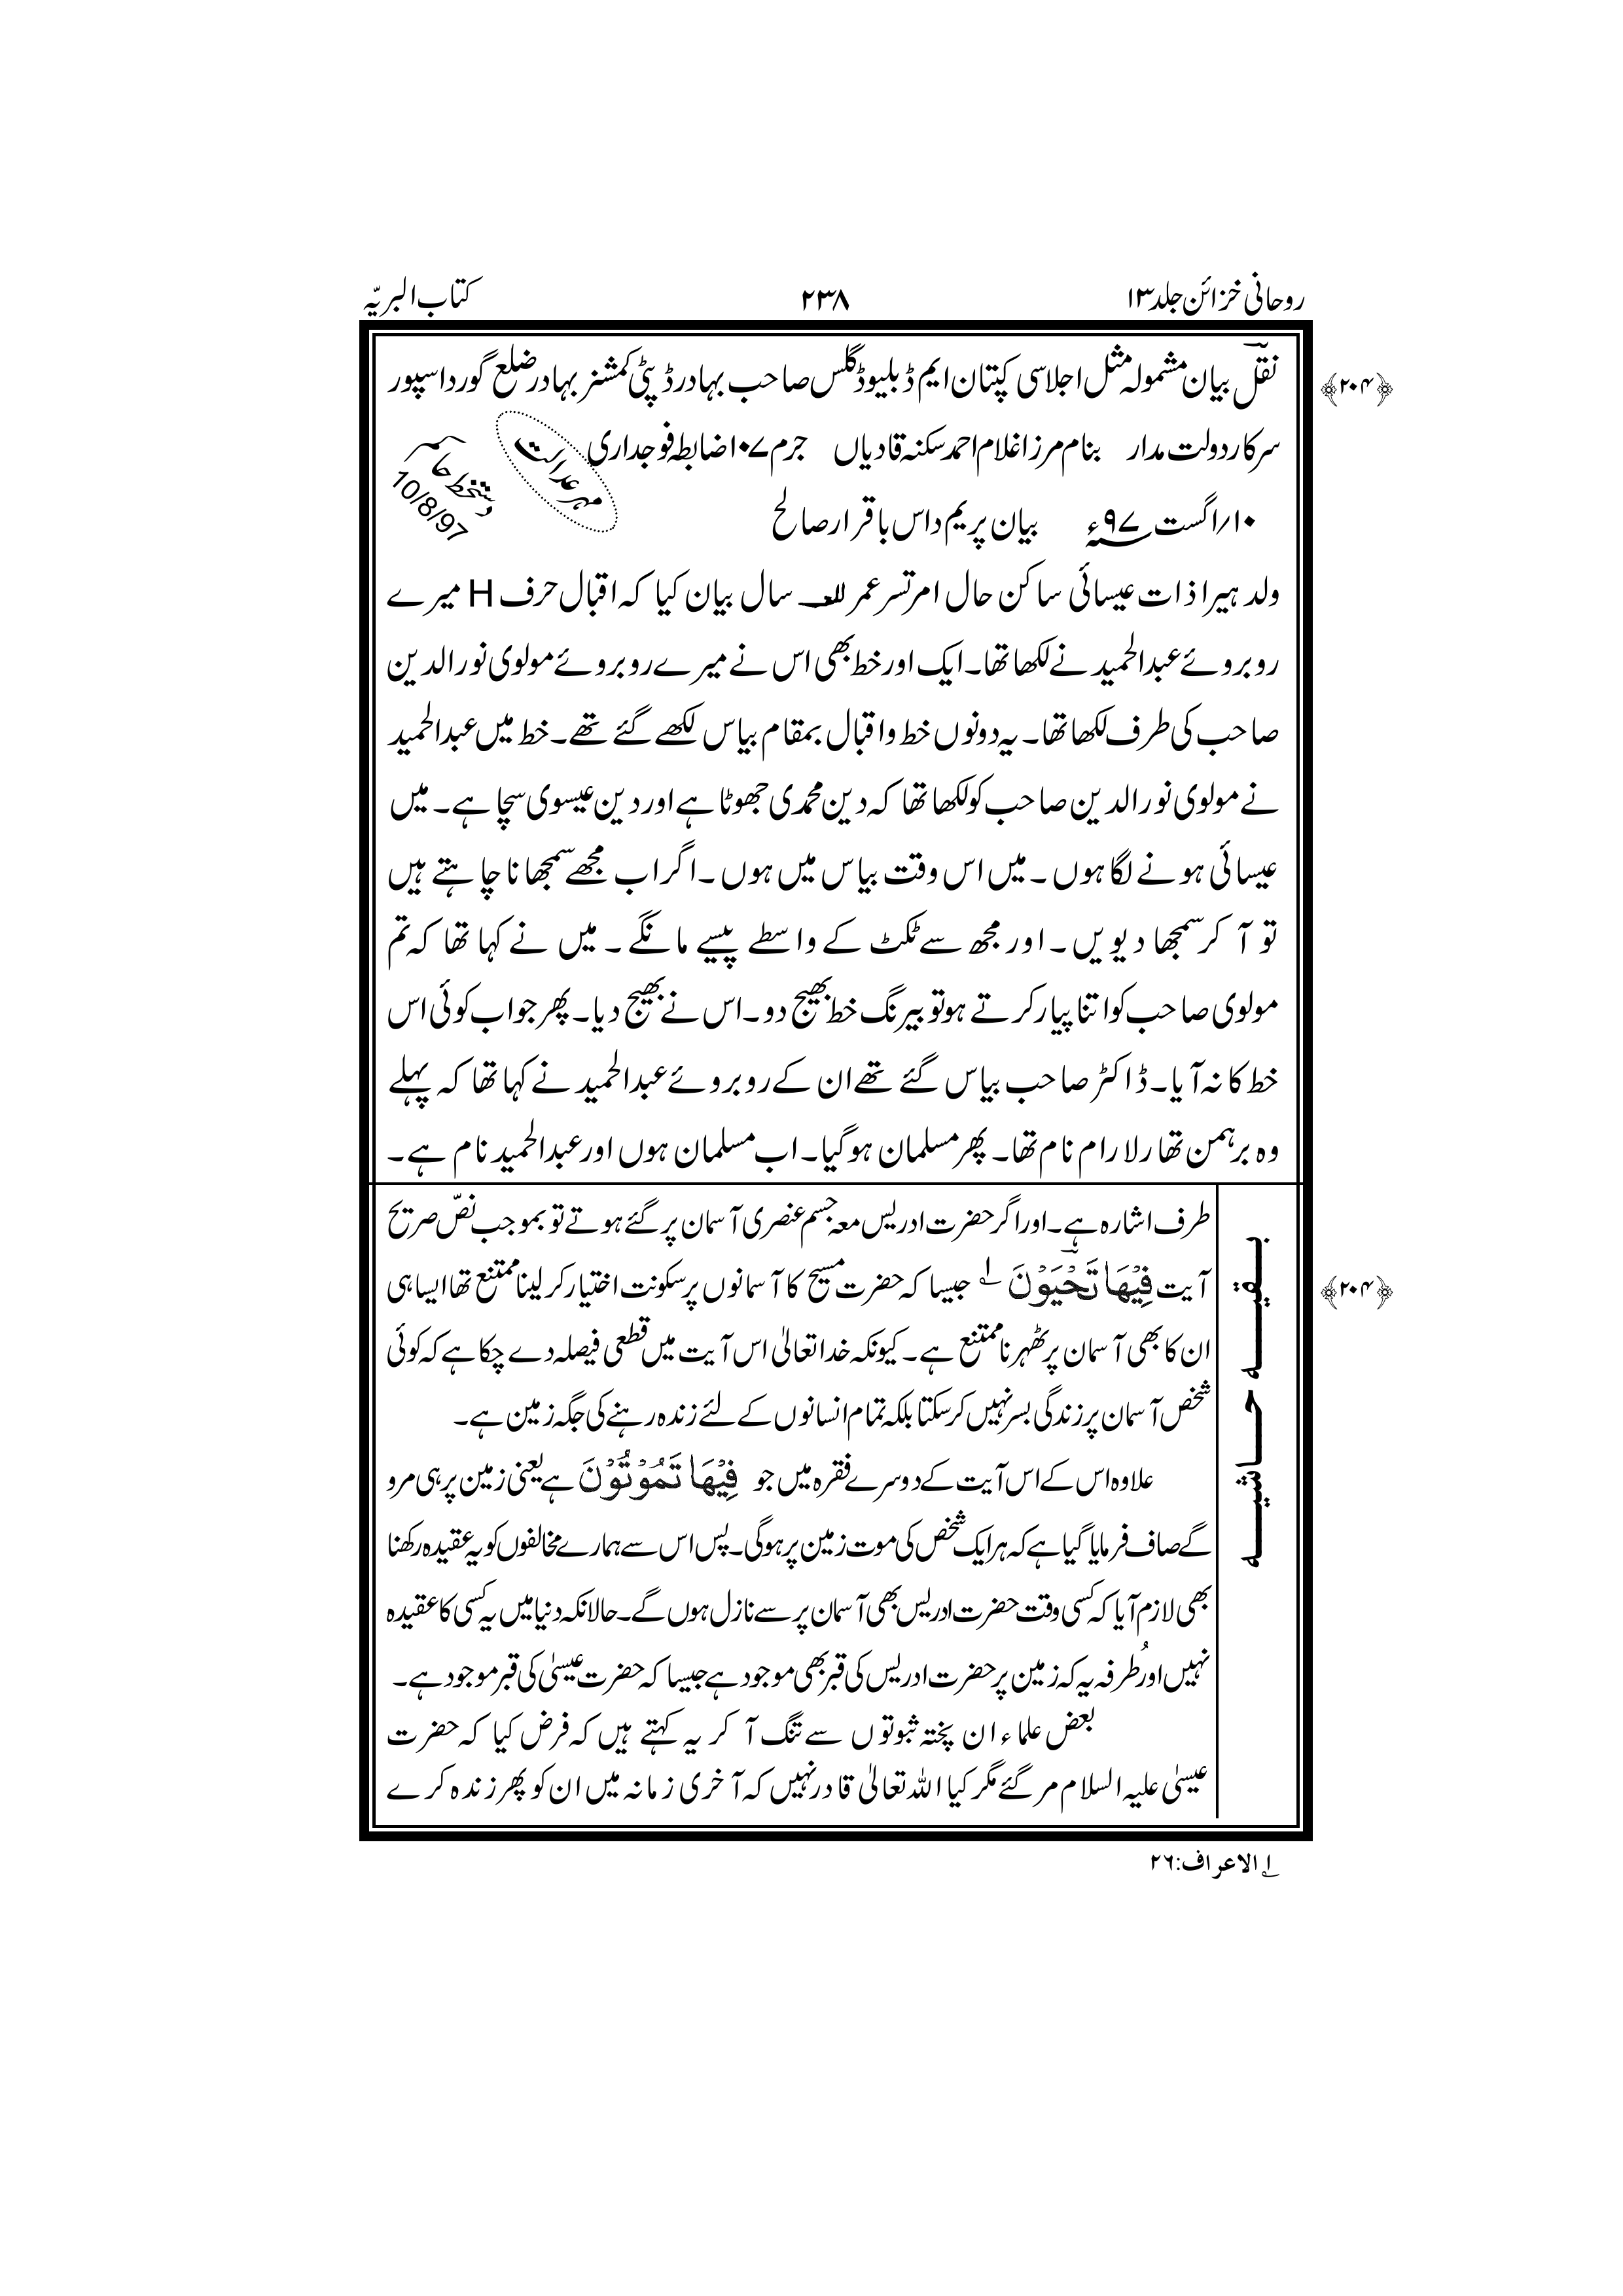 روحانی خزائن جلد۱۳
۲۳۸
کتاب البریّہ
نقل بیان مشمولہ مثل اجلاسی کپتان ایم ڈبلیو ڈگلس صاحب بہادر ڈپٹی کمشنر بہادر ضلع گورداسپور
﴿۲۰۴﴾
سرکار دولت مدار بنام مرزا غلام احمد سکنہ قادیاں جرم ۱۰۷ ضابطہ فوجداری
مہر عدالت
دستخط حاکم
10/8/97
۱۰/اگست ۹۷ء بیان پریم داس باقرار صالح
ولد ہیرا ذات عیسائی ساکن حال امرتسر عمر سال بیان کیا کہ اقبال حرف H میرے
روبروئے عبدالحمید نے لکھا تھا۔ ایک اور خط بھی اس نے میرے روبروئے مولوی نورالدین
صاحب کی طرف لکھا تھا۔ یہ دونوں خط و اقبال بمقام بیاس لکھے گئے تھے۔ خط میں عبدالحمید
نے مولوی نورالدین صاحب کو لکھا تھا کہ دین محمدی جھوٹا ہے اور دین عیسوی سچا ہے۔ میں
عیسائی ہونے لگا ہوں۔ میں اس وقت بیاس میں ہوں۔ اگر اب مجھے سمجھانا چاہتے ہیں
تو آ کر سمجھا دیویں۔ اور مجھ سے ٹکٹ کے واسطے پیسے مانگے۔ میں نے کہا تھا کہ تم
مولوی صاحب کو اتنا پیار کرتے ہو تو بیرنگ خط بھیج دو۔ اس نے بھیج دیا۔ پھر جواب کوئی اس
خط کا نہ آیا۔ ڈاکٹر صاحب بیاس گئے تھے ان کے روبروئے عبدالحمید نے کہا تھا کہ پہلے
وہ برہمن تھا رلا رام نام تھا۔ پھر مسلمان ہو گیا۔ اب مسلمان ہوں اور عبدالحمید نام ہے۔
بقیہ حاشیہ
طرف اشارہ ہے۔ اور اگر حضرت ادریس معہ جسم عنصری آسمان پر گئے ہوتے تو بموجب نصّ صریح
آیت فِيْهَا تَحْيَوْنَ ۱؎ جیسا کہ حضرت مسیح کا آسمانوں پر سکونت اختیار کر لینا ممتنع تھا ایسا ہی
﴿۲۰۴﴾
ان کا بھی آسمان پر ٹھہرنا ممتنع ہے۔ کیونکہ خدا تعالیٰ اس آیت میں قطعی فیصلہ دے چکا ہے کہ کوئی
شخص آسمان پر زندگی بسر نہیں کر سکتا بلکہ تمام انسانوں کے لئے زندہ رہنے کی جگہ زمین ہے۔
علاوہ اس کے اس آیت کے دوسرے فقرہ میں جو فِيْهَا تَمُوْتُوْنَ ہے یعنی زمین پر ہی مرو
گے صاف فرمایا گیا ہے کہ ہر ایک شخص کی موت زمین پر ہوگی۔ پس اس سے ہمارے مخالفوں کو یہ عقیدہ رکھنا
بھی لازم آیا کہ کسی وقت حضرت ادریس بھی آسمان پر سے نازل ہوں گے۔ حالانکہ دنیا میں یہ کسی کا عقیدہ
نہیں اور طُرفہ یہ کہ زمین پر حضرت ادریس کی قبر بھی موجود ہے جیسا کہ حضرت عیسیٰ کی قبر موجود ہے۔
بعض علماء ان پختہ ثبوتوں سے تنگ آ کر یہ کہتے ہیں کہ فرض کیا کہ حضرت
عیسیٰ علیہ السلام مر گئے مگر کیا اللہ تعالیٰ قادر نہیں کہ آخری زمانہ میں ان کو پھر زندہ کرے
۱؎ الاعراف:۲۶